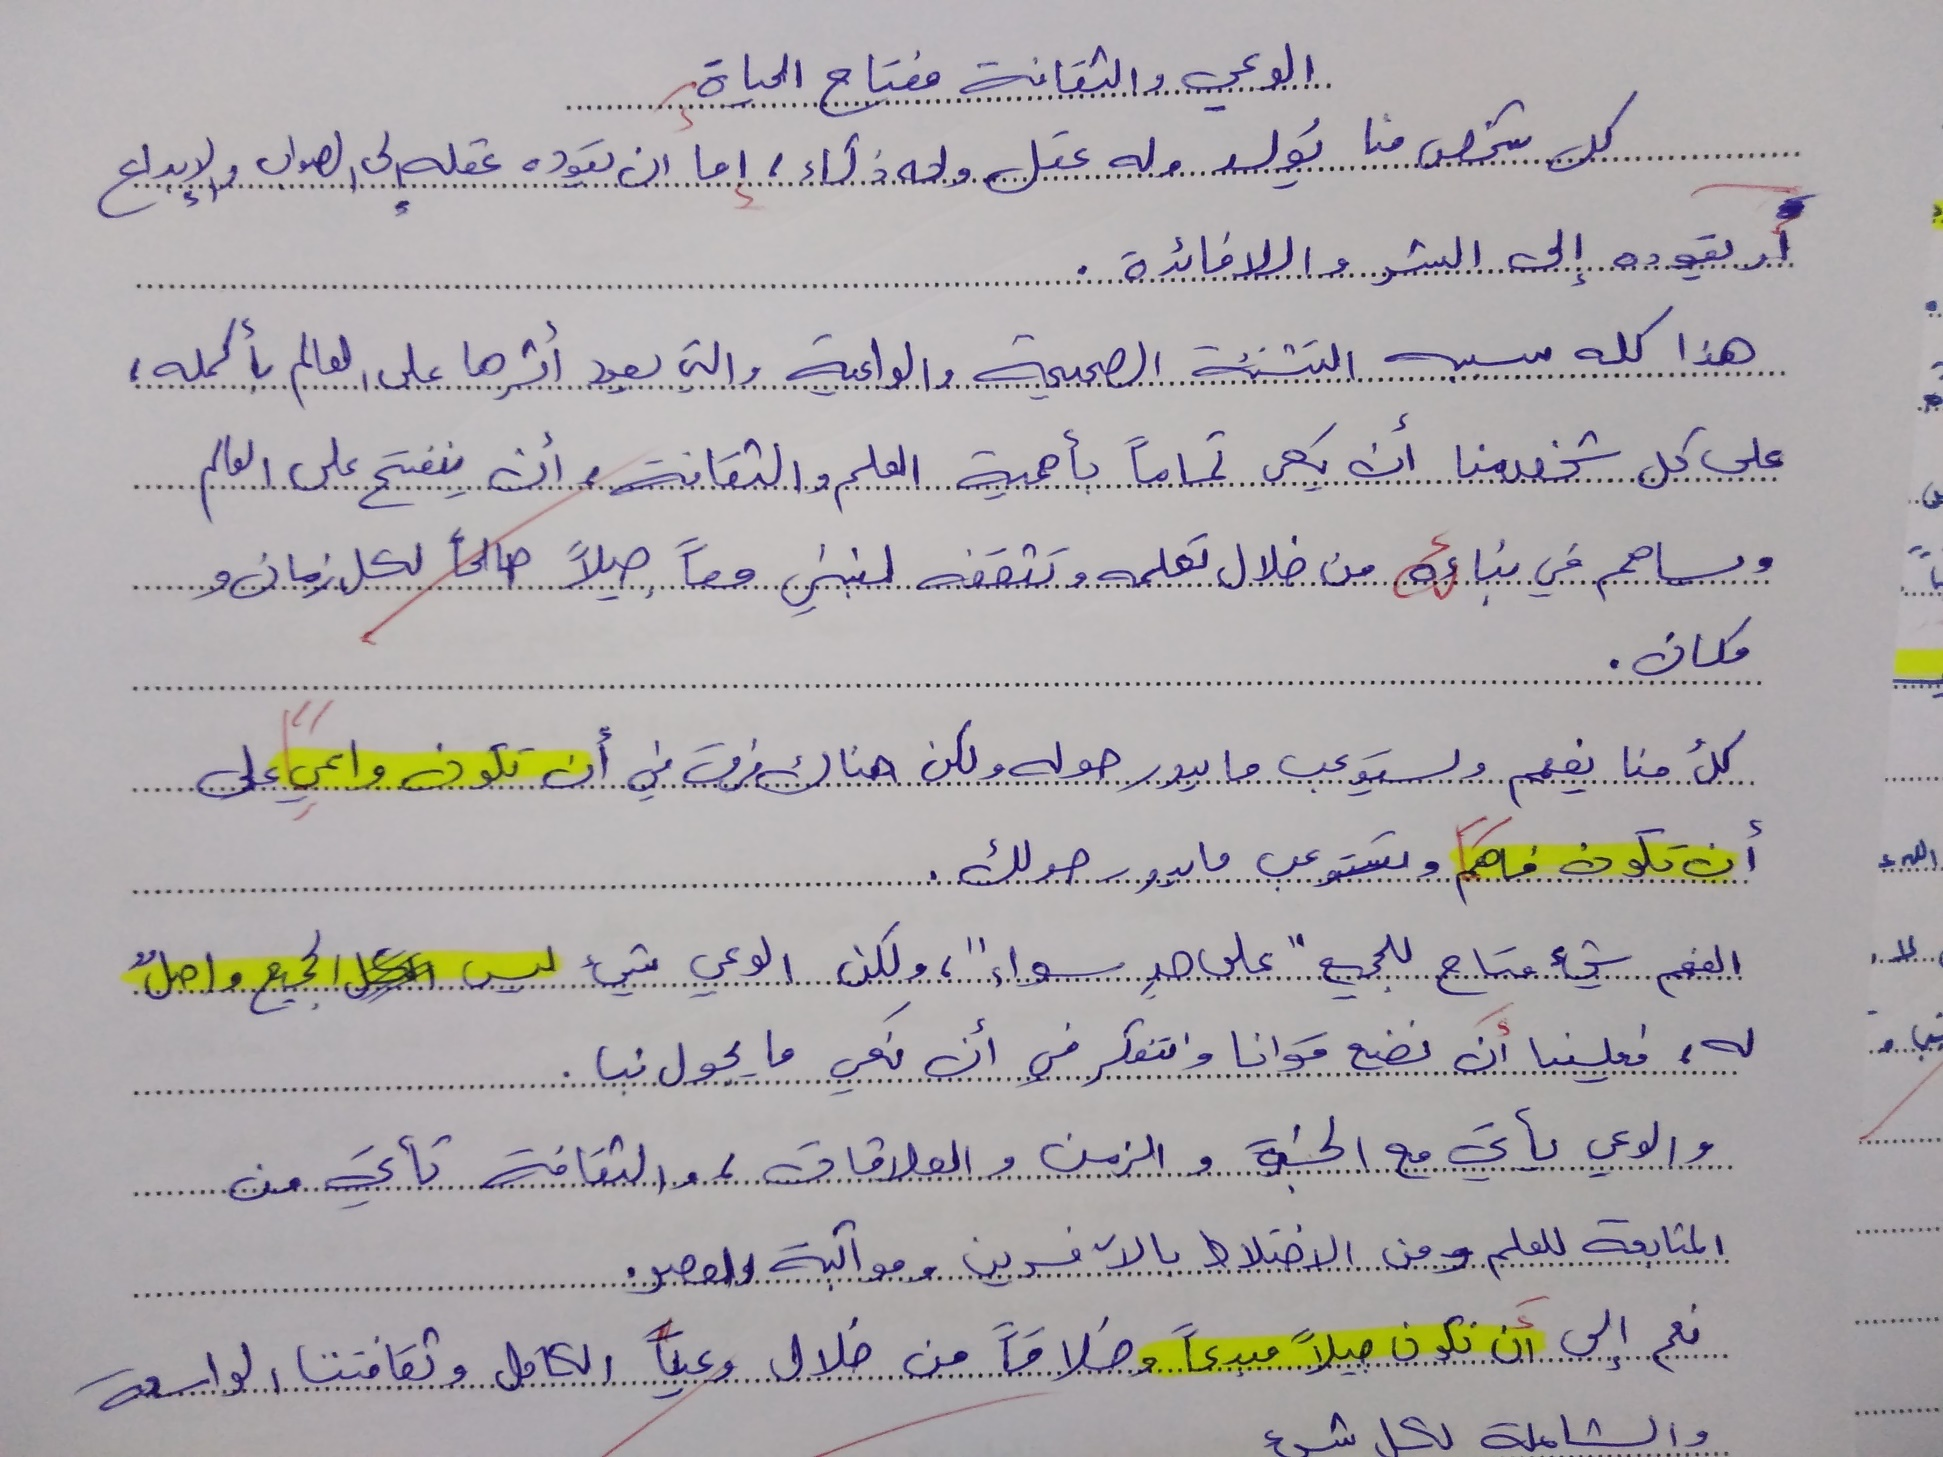 الوعي والثقافة مفتاح الحياة
كل شخص منا يُولد وله عقل وله ذكاء، إما ان يقوده عقله إلى الصواب والإبداع
أو يقوده إلى الشر واللافائدة .
هذا كله سببه التنشئة الصحيحة والواعية والتي يعود أثرها على العالم بأكمله،
على كل شخص منا أن يَعي تماماً بأهمية العلم والثقافة، أن ينفتح على العالم
ويساهم في بناءه من خلال تعلمه وتثقفه لنبني معاً جيلاً صالحاً لكل زمان و
مكان .
كلُ منا يفهم ويستوعب ما يدور حوله ولكن هناك فرق في أن تكون واعي على
أن تكون فاهمَ وتستوعب ما يدور حولك .
الفهم شيء متاح للجميع "على حدٍ سواء"، ولكن الوعي شيء ليس الجميع واصلٌ
له، فعلينا أن نضع قوانا والتفكر في أن نَعي ما يحول بنا .
والوعي يأتي مع الخبرة والزمن والعلاقات، والثقافة تأتي من
المتابعة للعلم ومن الاختلاط بالآخرين ومواكبة العصر.
نعم إلى أن نكون جيلاً مبدعاً وخلاقاً من خلال وعينا الكامل وثقافتنا الواسعة
والشاملة لكل شيء